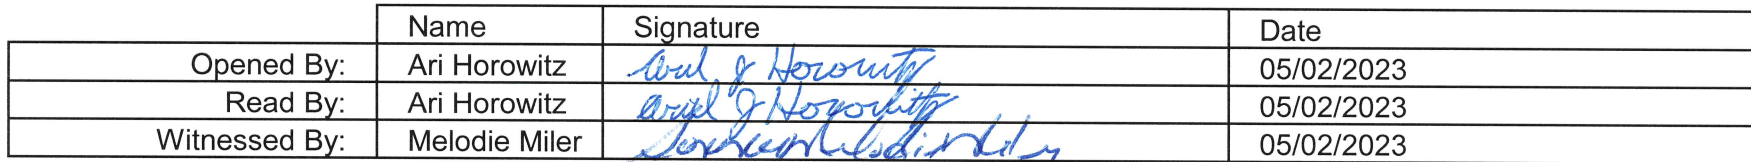 Name Signature Date
Opened By: Ari Horowitz Ariel J Horowitz 05/02/2023
Read By: Ari Horowitz Ariel J Horowitz 05/02/2023
Witnessed By: Melodie Miler 05/02/2023